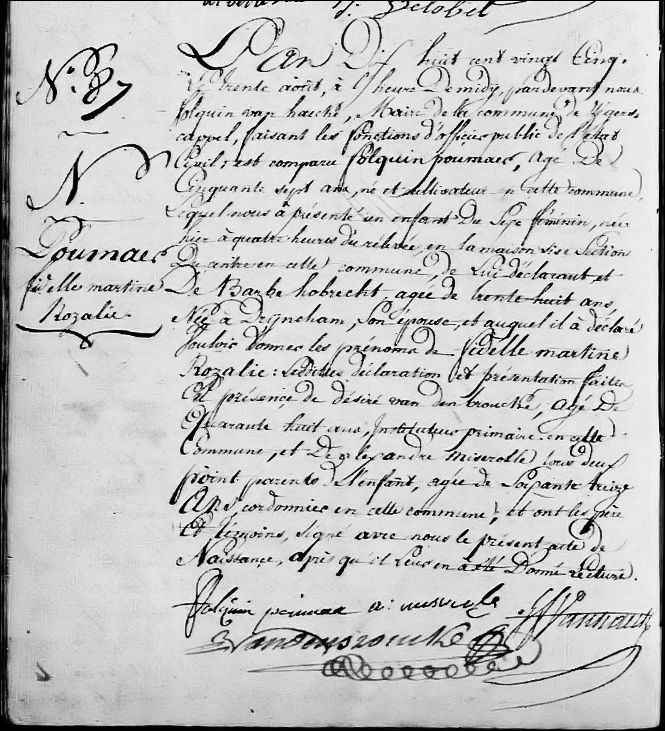 N.° 37
N.
Poumaer
fidelle martine
Rozalie
L'an Dix huit cent vingt cinq
le trente août, à heure De midy, pardevant nous
folquin van haecke, Maire De la commune de Zegers
cappel, faisant les fonctions d'officier public de l'etat
Civil, est comparu folquin poumaer, agé De
Cinquante sept ans, né et cultivateur en cette commune,
Lequel nous à présenté un enfant Du Sexe féminin, née
hier à quatre heures du rélevée, en sa maison sise Section
Du centre en cette commune, de Lui déclarant et
De Barbe hobrecht agée de trente huit ans,
Née à Dryncham, Son épouse, et auquel il à déclaré
Vouloir donner les prénoms de fidelle martine
Rozalie: Lesdittes déclaration et présentation faites
En présence de désiré van den brouche, agé De
Quarante huit ans, Instituteur primaire en cette
Commune, et De alexandre miserolle tous deux
point parents de l'enfant, agé de Soixante treize
Ans, cordonnier en cette commune, et ont les père
Et témoins, signé avec nous le présent acte de
Naissance, après qu'il Leur en a été Donné Lecture.
folquin poumaer a: miserolle
Vandenbrouche